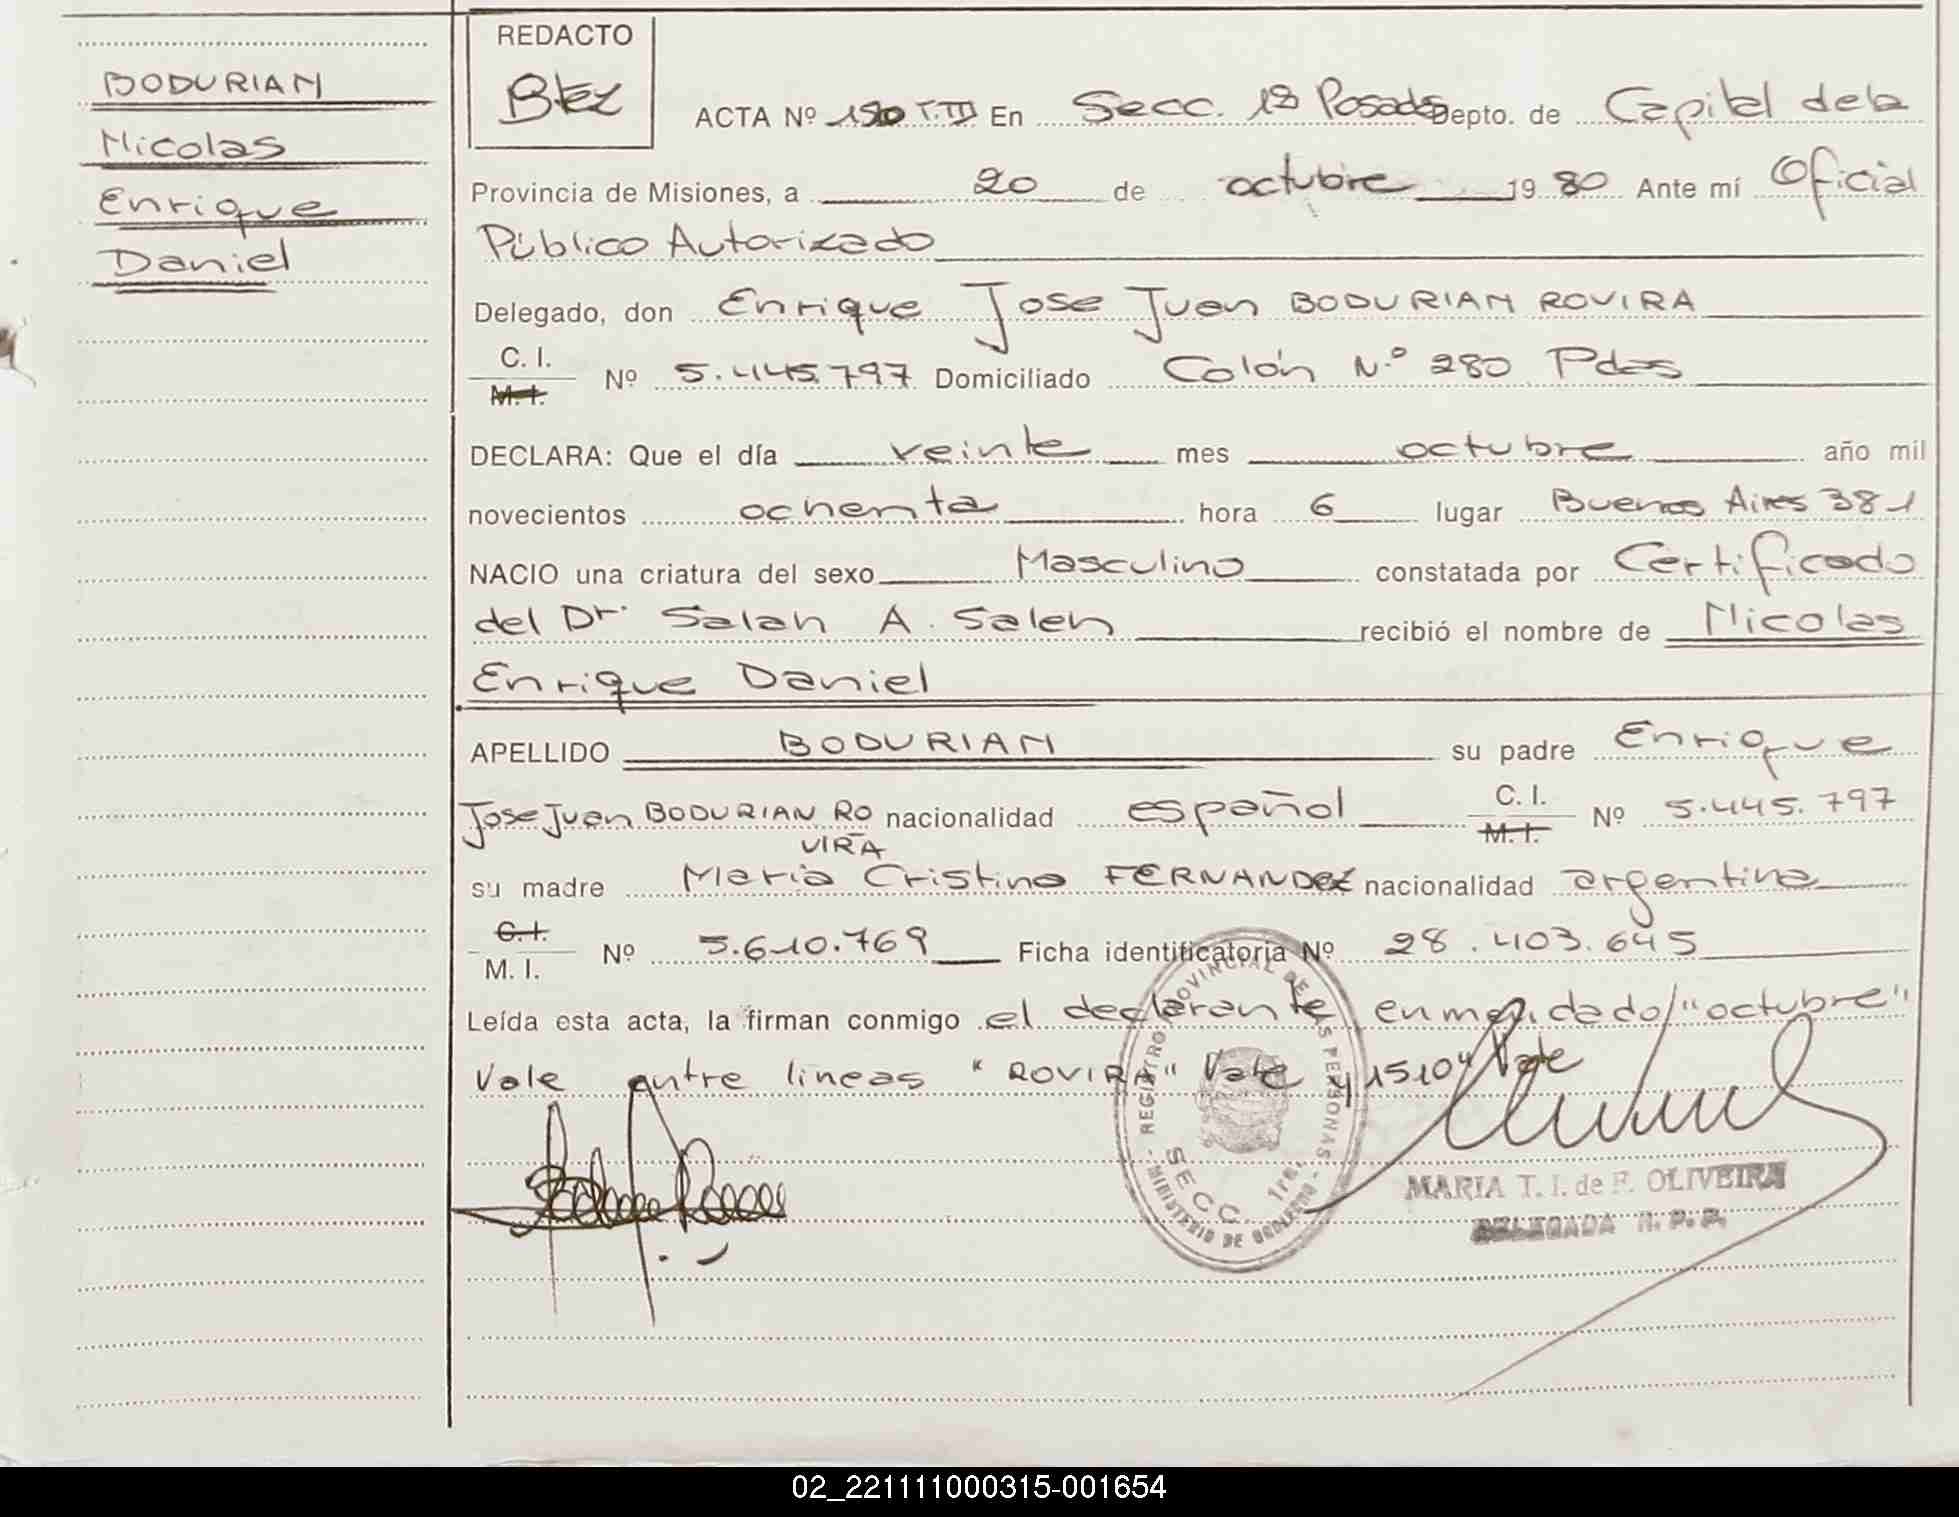 BODURIAN
Nicolas
Enrique
Daniel
REDACTO
Btez
ACTA Nº 1510 T.III En Secc. 1ª Posadas Depto. de Capital de la
Provincia de Misiones, a 20 de octubre 1980 Ante mí Oficial
Público Autorizado
Delegado, don Enrique Jose Juan BODURIAN ROVIRA
C. I.
M. I. Nº 5.445.797 Domiciliado Colón N.º 280 Pdas
DECLARA: Que el día veinte mes octubre año mil
novecientos ochenta hora 6 lugar Buenos Aires 381
NACIO una criatura del sexo Masculino constatada por Certificado
del Dr. Salan A. Salen recibió el nombre de Nicolas
Enrique Daniel
APELLIDO BODURIAN su padre Enrique
Jose Juan BODURIAN RO nacionalidad español C. I. M. I. Nº 5.445.797
VIRA
su madre Maria Cristina FERNANDEZ nacionalidad argentina
C. I.
M. I. Nº 5.610.769 Ficha identificatoria Nº 28.403.645
Leída esta acta, la firman conmigo el declarante enmendado/"octubre"
Vale entre lineas "ROVIRA" Vale y 1510" Vale
REGISTRO PROVINCIAL DE LAS PERSONAS
SECC 1ra.
MINISTERIO DE GOBIERNO
MARIA T. I. de F. OLIVEIRA
DELEGADA R. P. P.
02_221111000315-001654